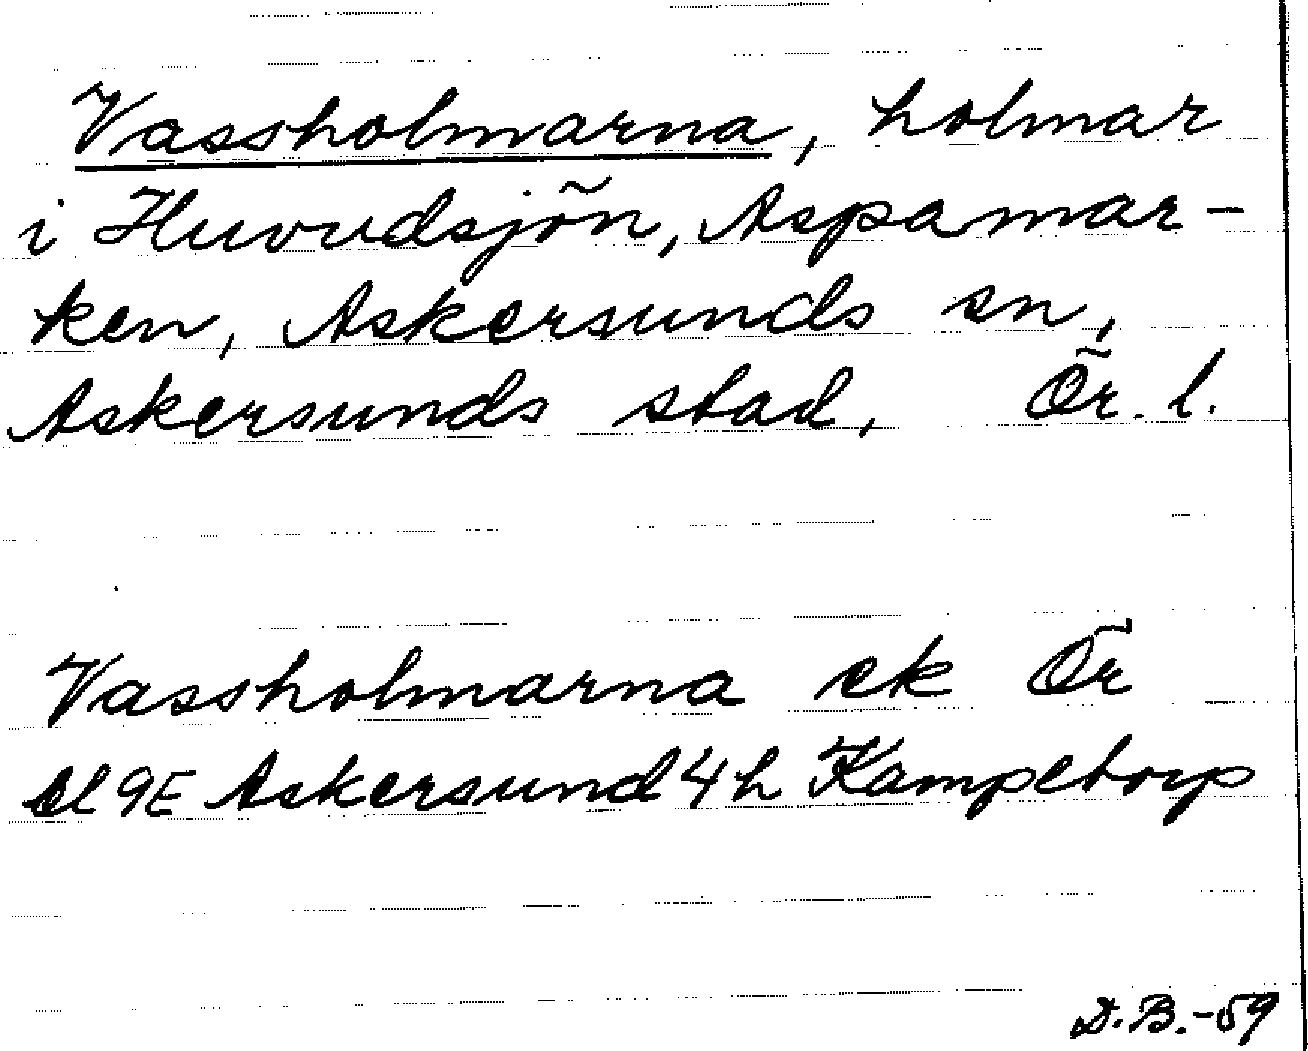 Vassholmarna, holmar
i Huvudsjön, Aspamar-
ken, Askersunds sn,
Askersunds stad, Ör. l.
Vassholmarna ek Ör
bl 9E Askersund 4h Kampetorp
D.B.-59